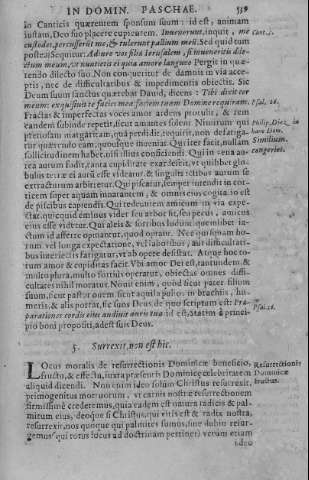 IN DOMIN. PASCHAE. 559
in Canticis quærentem sponsum suum: id est, animam
iustam, Deo suo placere cupientem. Inuenerunt, inquit, me Cant. 5.
custodes, percusserunt me, & tulerunt pallium meũ. Sed quid tum
postea? Sequitur: Adiuro vos filiæ Ierusalem, si inueneritis dile-
ctum meum, vt nuntietis ei quia amore langueo Pergit in quæ-
rendo dilecto suo. Non conueritur de damnis in via acce-
ptis, nec de difficultatibus & impedimentis obiectis. Sic
Deum suum sanctus quærebat Dauid, dicens: Tibi dixit cor
meum: exquisiuit te facies mea: faciem tuam Domine requiram. Psal. 26.
Fractas & imperfectas voces amor ardens protulit, & rem
eandem subinde repetit, sicut amantes solent Nimirum qui Philip. Diez. in
pretiosam margaritam, quã perdidit, requirit, non defatiga- hunc Dom.
tur quærendo eam, quousque inueniat. Qui iter facit, nullam Similium
sollicitudinem habet, nisi conficiendi. Qui in vena au- congeries.
rea aurum fodit, tanta cupiditate exardescit, vt quibus glo-
bulis terræ ei aurũ esse videatur, & singulis ictibus aurum se
extracturum arbitretur. Qui piscatur, semper intendit in cor-
ticem super aquam innatantem, & omnis eius cogitatio est
de piscibus capiendis. Qui redeuntem amicum in via expe-
ctat, quicquid eminus videt seu arbor sit, seu pecus, amicus
eius esse videtur. Qui aleis & sortibus ludunt quemlibet ia-
ctum id afferre opinantur, quod optant. Nec quisquam ho-
rum vel longa expectatione, vel laboribus, aut difficultati-
bus interiectis fatigatur, vt ab opere desistat. Atque hoc to-
tum amor & cupiditas facit. Vbi amor Dei est, tantundem &
multo plura, multo fortius operatur, obiectas omnes diffi-
cultates nihil moratur. Nouit enim, quòd sicut pater filium
suum, sicut pastor ouem, sicut aquila pullos, in brachiis, hu-
meris, & alis portat, sic suos Deus: de quo scriptum est: Præ-
parationem cordis eius audiuit auris tua: id est, statim à princi- Psal.
pio boni propositi, adest suis Deus.
5. Surrexit, non est hic.
LOcus moralis de resurrectionis Dominicæ beneficio, Resurrectionis
fructo, & effectu, iuxta præsentis Dominicæ celebritatem Dominicæ
aliquid dicendi. Non enim ideo solum Christus resurrexit, fructus.
primogenitus mortuorum, vt carnis nostræ resurrectionem
firmissimè crederemus, quia eadem est natura radicis & pal-
mitum eius, deoque si Christus, qui vitis est & radix nostra,
resurrexit, nos quoque qui palmites sumus, sine dubio resur-
gemus (qui totus locus ad doctrinam pertinet) verum etiam
ideo